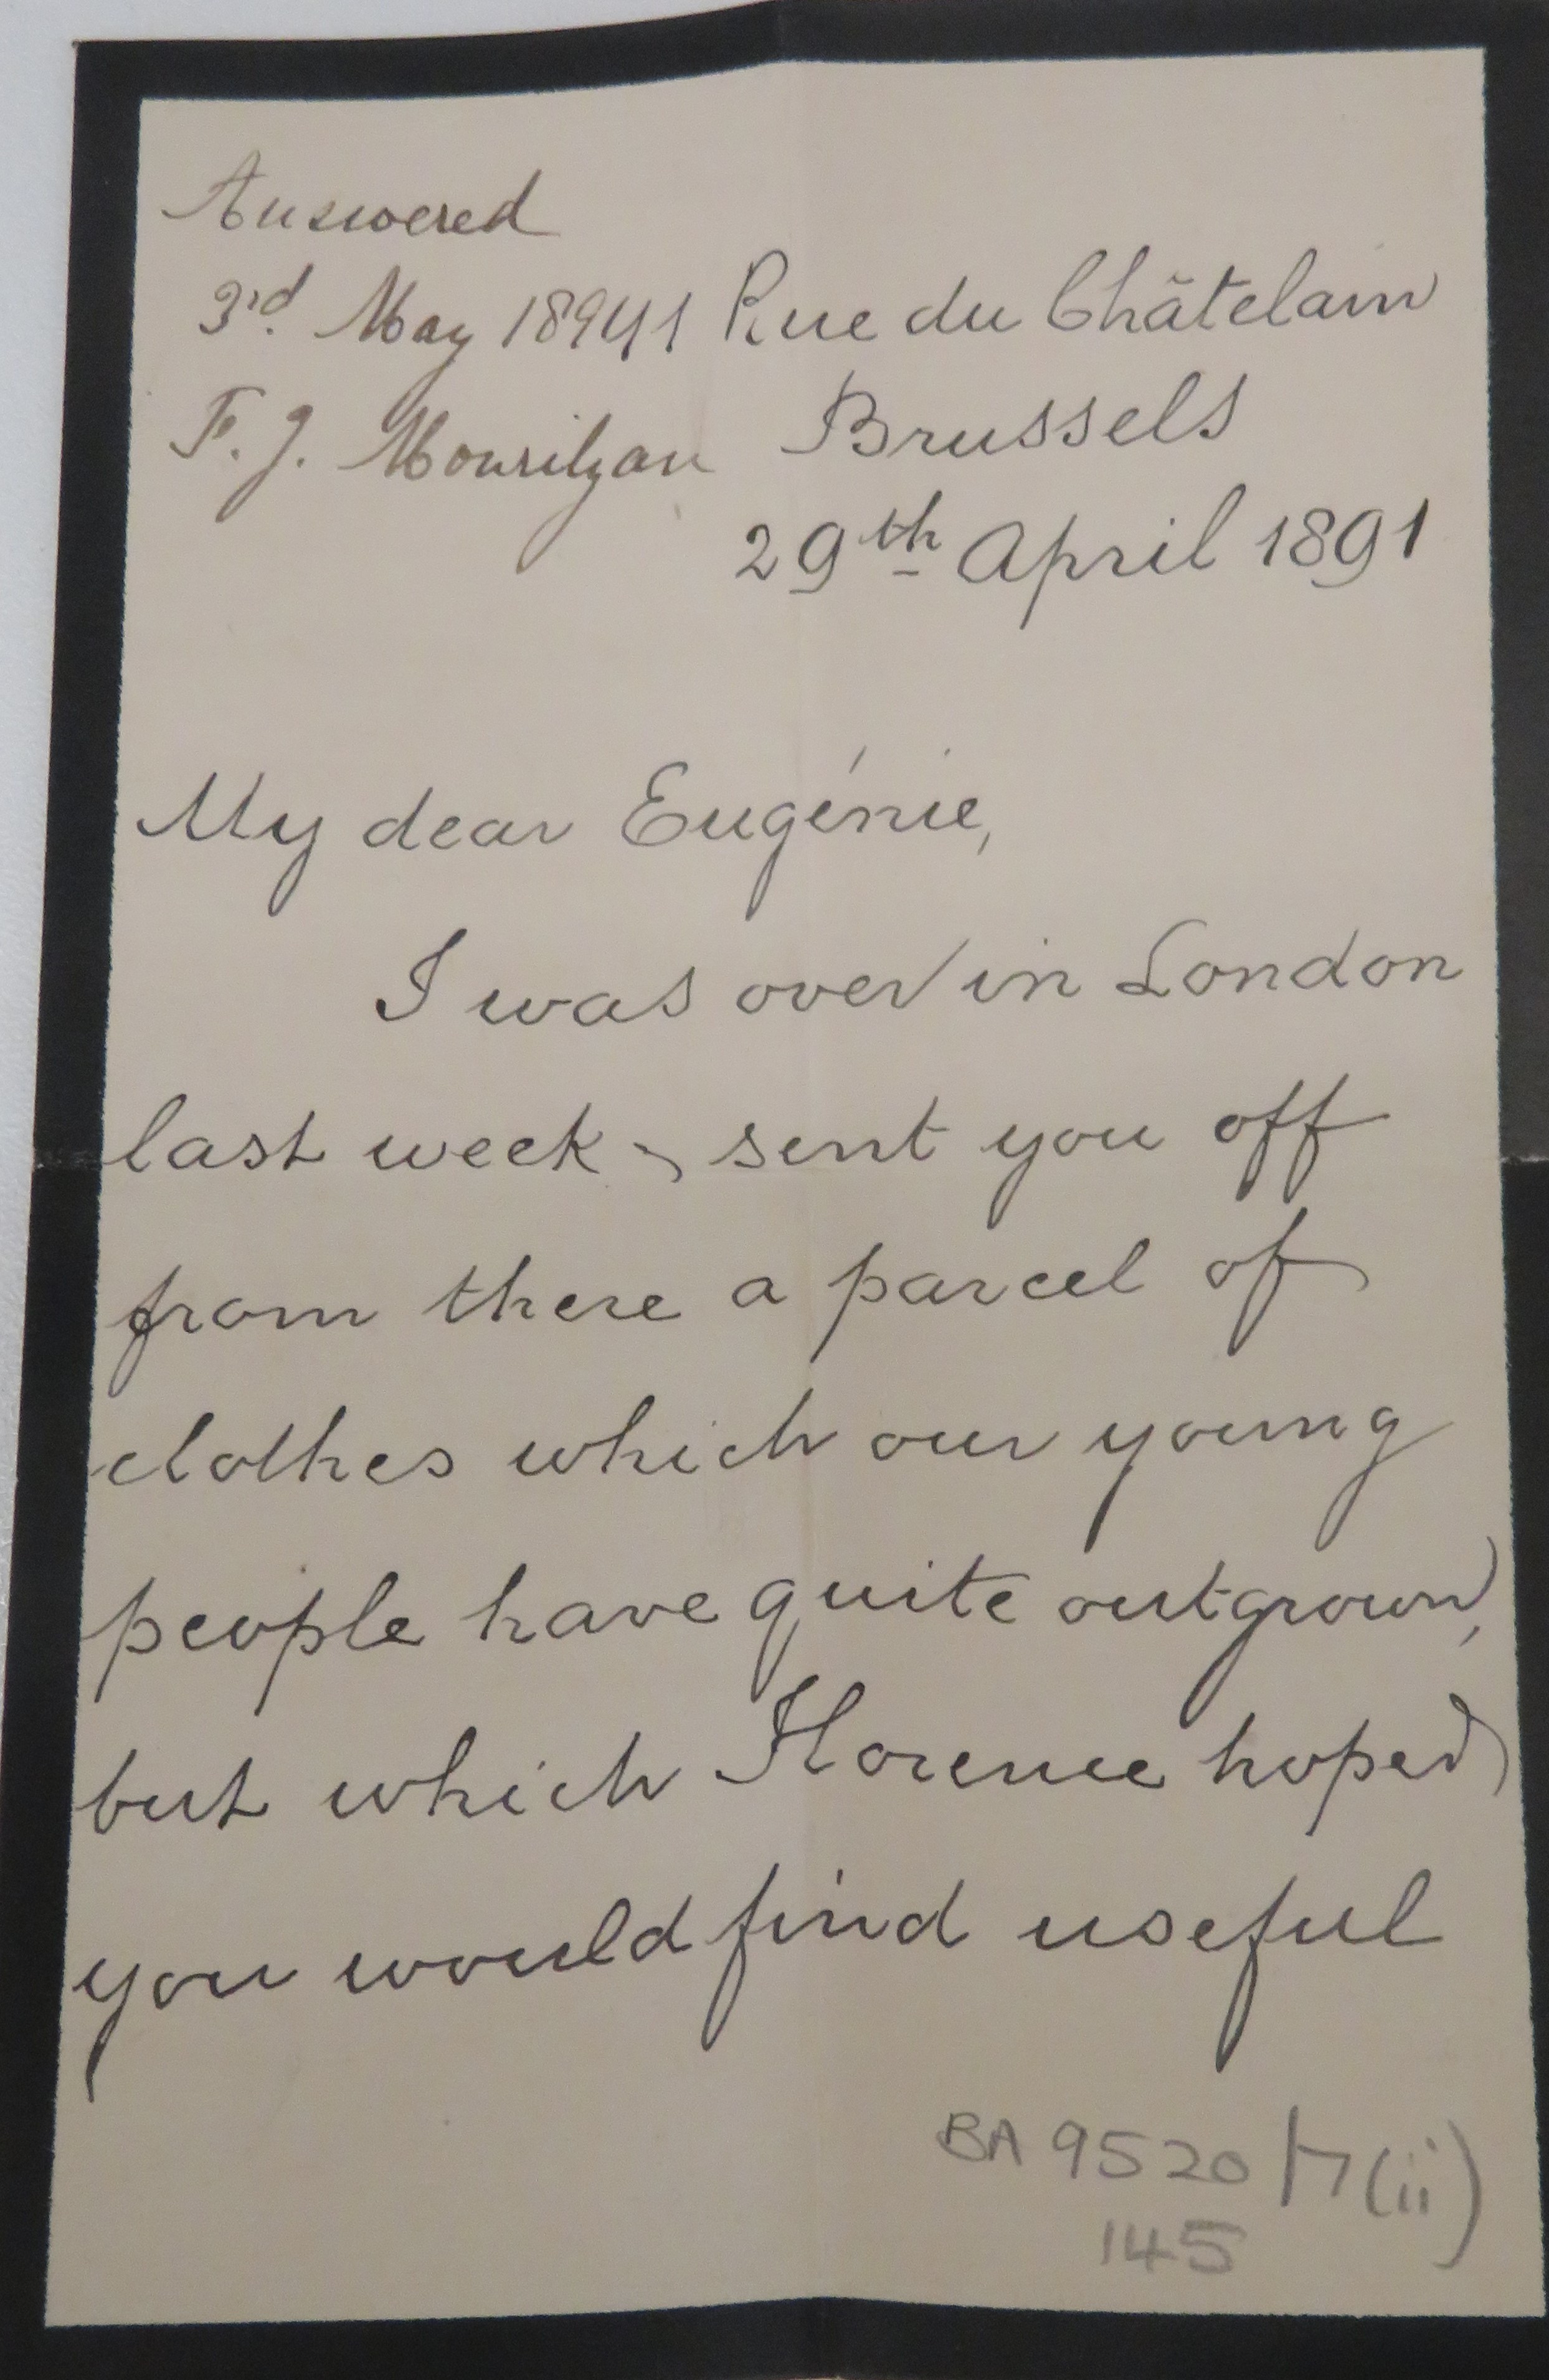 Answered
3rd. May 189 41 Rue du Châtelain
F. J. Mourilyan Brussels
29th April 1891
My dear Eugénie,
I was over in London
last week & sent you off
from there a parcel of
clothes which our young
people have quite outgrown,
but which Florence hoped
you would find useful
BA 9520 /7(ii)
145